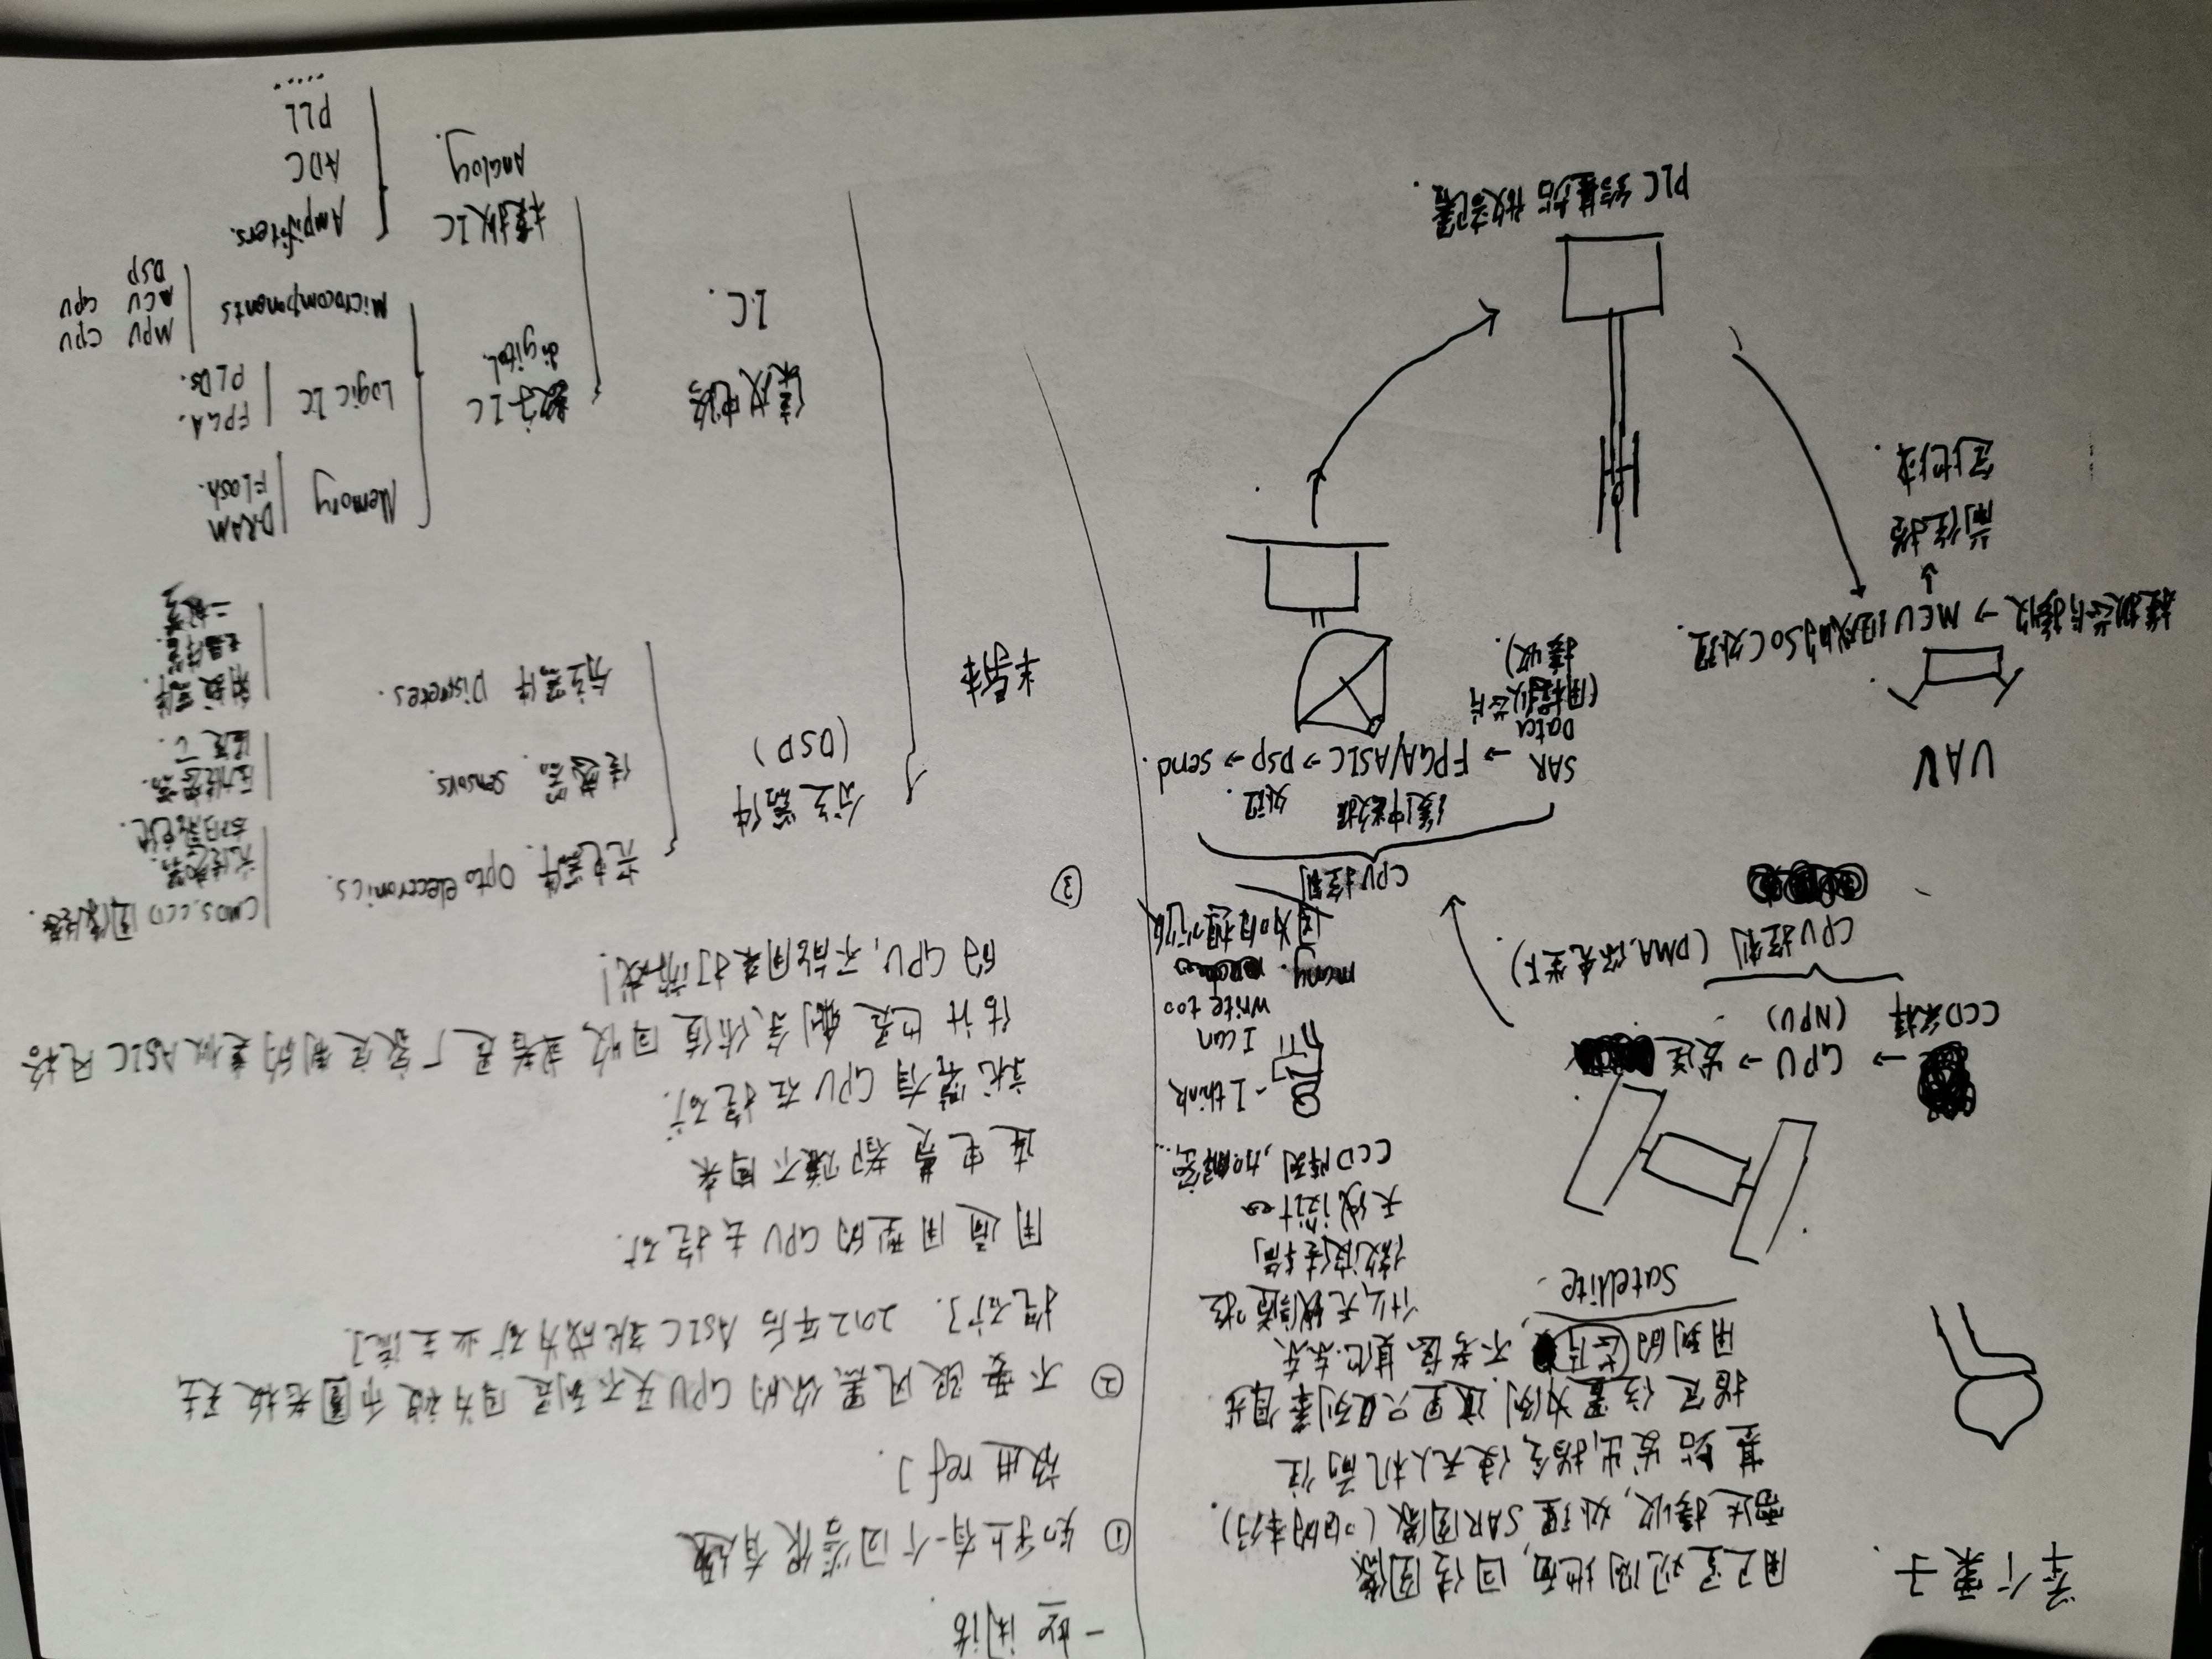 举个栗子、
用卫星观测地面，回传图像
雷达接收，处理SAR图像（咱的本行）.
基站发出指令使无人机前往
指定位置为例.这里只列举每步
用到的芯片，不考虑其他东东
什么无线信道啦
微波传输
天线设计
CCD阵列，加解密...
Satellite
CCD采样 → GPU → 发送
(NPU)
CPU控制 (DMA,你先坐下).
- I think
I can
write too
many.
因为咱想吃饭
CPU控制
缓冲数据 处理.
SAR Data → FPGA/ASIC → DSP → send.
(用模拟芯片
接收).
UAV
模拟芯片接收 → MCU组成的SoC处理.
↓
前往指
定地域.
PLC给基站做部署.
一些闲话
① 知乎上有一个回答很有趣
放进ref了.
② 不要跟风黑你的GPU买不到是因为被币圈老板买去
挖矿了. 2012年后ASIC就成为矿业主流了.
用通用型的GPU去挖矿.
连电费都赚不回来
就算有GPU在挖矿.
估计也是剩余价值回收或者是厂家定制的类似ASIC风格
的GPU,不能用来打游戏!
③
半导体
分立器件
(OSD)
光电器件. Optoelectronics.
CMOS.CCD图像传感.
光传感器.
太阳能电池.
传感器. sensors.
压力传感器.
温度~.
分立器件 Discretes.
射频器件.
晶体管.
二极管
集成电路
I.C.
数字IC
digital.
Memory
DRAM
Flash.
Logic IC
FPGA.
PLDs.
Microcomponents
MPU CPU
MCU GPU
DSP
模拟IC
Analog.
Ampifiters.
ADC
PLL
.....